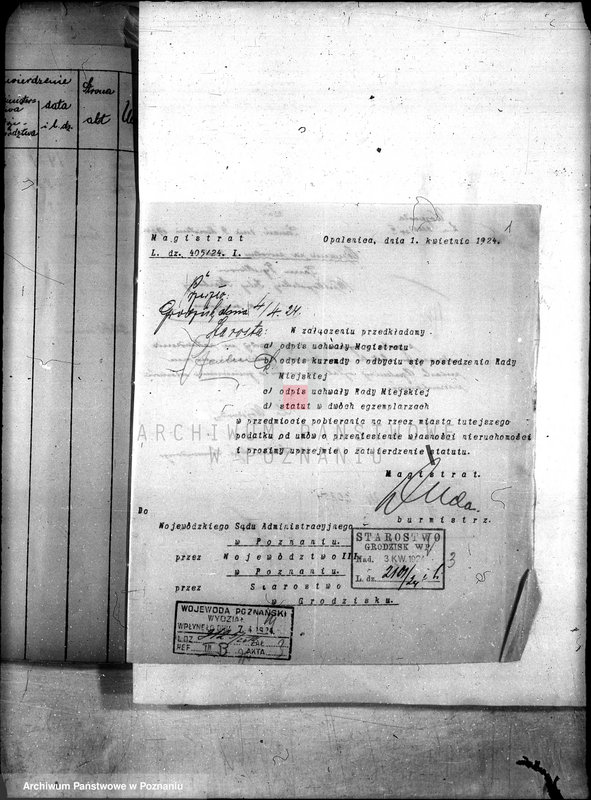 Strona
data
akt
i l. dz.
1
Magistrat Opalenica, dnia 1. kwietnia 1924.
L. dz. 405/24. I.
dnia 4/4 24.
Starosta:
W załączeniu przedkładamy
a/ odpis uchwały Magistratu
b/ odpis kurendy o odbyciu się posiedzenia Rady
Miejskiej
c/ odpis uchwały Rady Miejskiej
d/ statut w dwóch egzemplarzach
w przedmiocie pobierania na rzecz miasta tutejszego
ARCHIWUM PAŃSTWOWE
podatku od umów o przeniesienie własności nieruchomości
W POZNANIU
i prosimy uprzejmie o zatwierdzenie statutu.
Magistrat.
Duda.
burmistrz.
Do
Wojewódzkiego Sądu Administracyjnego
w Poznaniu.
przez Województwo III
w Poznaniu.
przez Starostwo
w Grodzisku.
STAROSTWO
GRODZISK WP.
Nad. 3 KW. 1924
L. dz. 2101/24
3
WOJEWODA POZNAŃSKI
WYDZIAŁ
WPŁYNĘŁO DNIA 7.4.1924
L.DZ. ZAŁ.
REF. AKTA
Archiwum Państwowe w Poznaniu